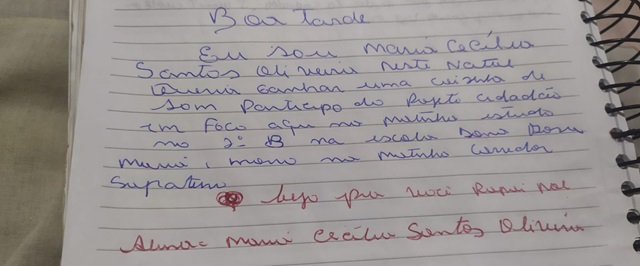 Boa tarde
Eu sou Maria Cecília
Santos Oliveira neste Natal
Queria ganhar uma caixinha de
som Participo do Projeto cidadão
em Foco aqui no matinho estudo
no 2º B na escola Dona Rosa
moro no matinho
beijo pra você Papai Noel
Aluna = Maria Cecília Santos Oliveira